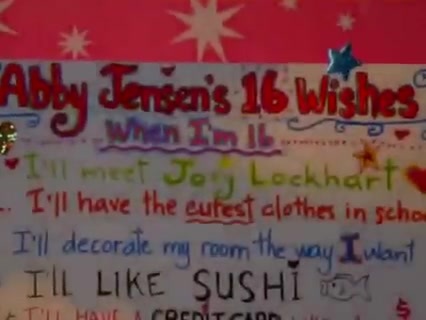 Abby Jensen's 16 Wishes
When I'm 16
I'll meet Joey Lockhart
I'll have the cutest clothes in schoo
I'll decorate my room the way I want
I'LL LIKE SUSHI
I'LL HAVE A CREDIT CARD